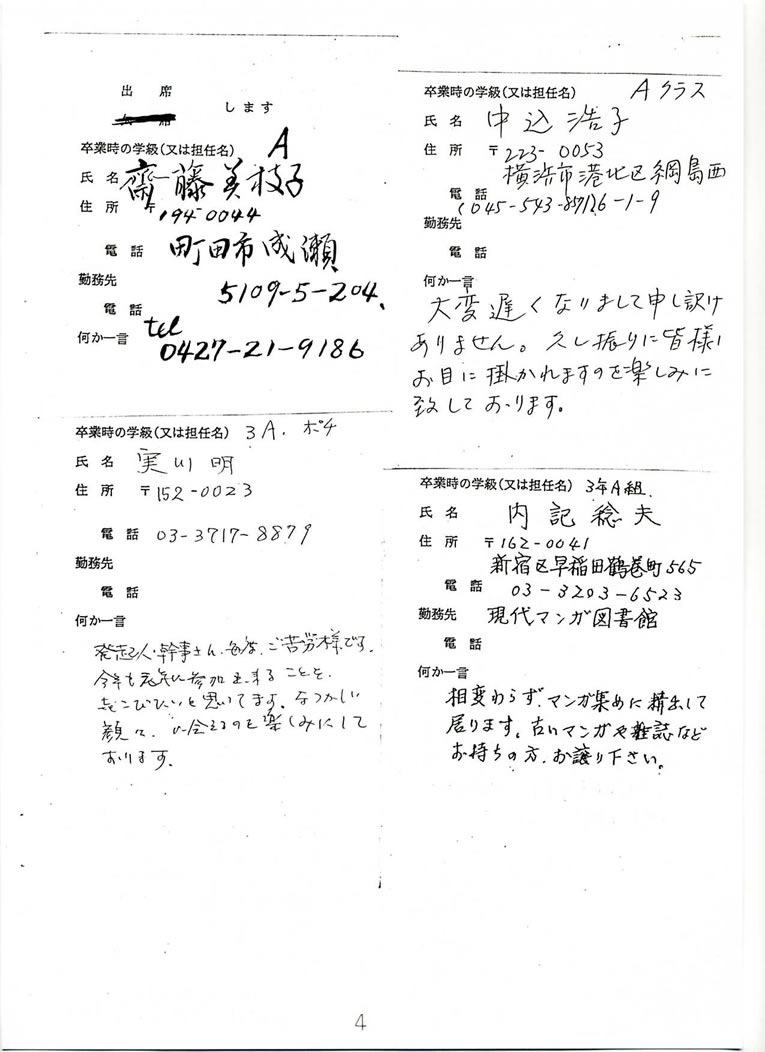 出席
欠席
します
卒業時の学級(又は担任名) A
氏名 齋藤美枝子
住所 〒194-0044
町田市成瀬
電話
勤務先 5109-5-204
電話
何か一言 tel
0427-21-9186
卒業時の学級(又は担任名) 3A. ポチ
氏名 実川明
住所 〒152-0023
電話 03-3717-8879
勤務先
電話
何か一言
発起人・幹事さん、毎度、ご苦労様です。
今年も元気に参加出来ることを
よろこびたいと思いてます。なつかしい
顔々、に会えるのを楽しみにして
おります。
卒業時の学級(又は担任名) Aクラス
氏名 中込浩子
住所 〒223-0053
横浜市港北区綱島西
6-1-9
電話 (045-543-8571)
勤務先
電話
何か一言
大変遅くなりまして申し訳け
ありません。久し振りに皆様に
お目に掛かれますのを楽しみに
致しております。
卒業時の学級(又は担任名) 3年A組.
氏名 内記稔夫
住所 〒162-0041
新宿区早稲田鶴巻町565
電話 03-3203-6523
勤務先 現代マンガ図書館
電話
何か一言
相変わらず、マンガ集めに精出して
居ります。古いマンガや雑誌など
お持ちの方、お譲り下さい。
4